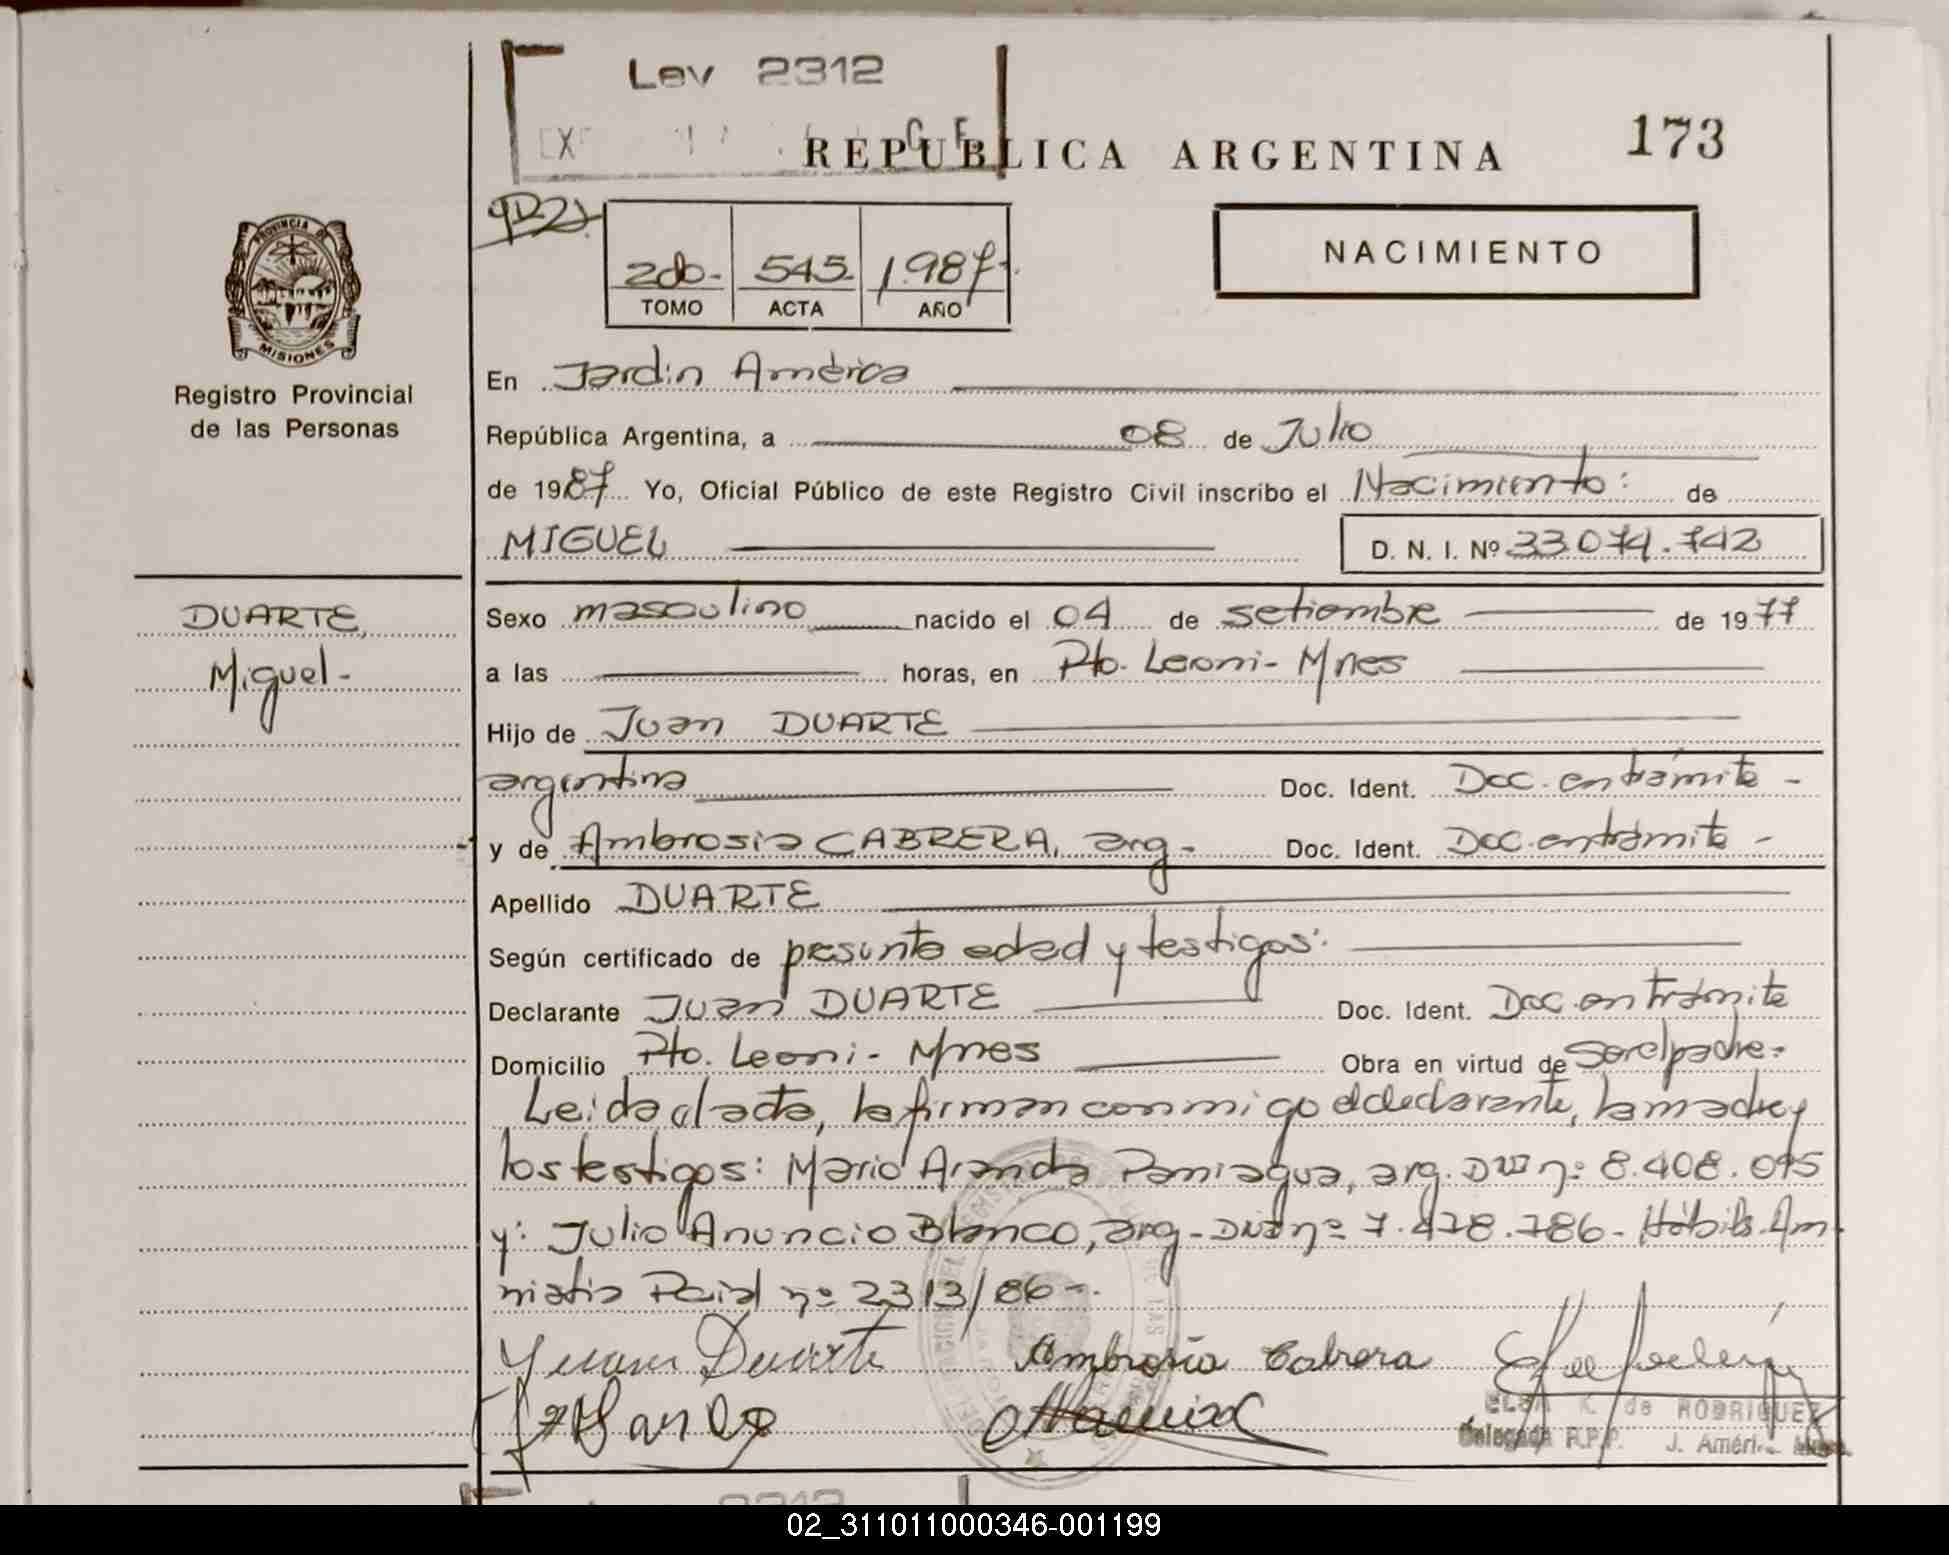 Ley 2312
REPUBLICA ARGENTINA
173
2do-
545.
1.987.
TOMO
ACTA
AÑO
NACIMIENTO
PROVINCIA DE
MISIONES
Registro Provincial
de las Personas
En Jardin América
República Argentina, a 08 de Julio
de 1987 Yo, Oficial Público de este Registro Civil inscribo el Nacimiento: de
MIGUEL
D. N. I. Nº 33.074.742
DUARTE,
Miguel-
Sexo masculino nacido el 04 de setiembre de 1977
a las horas, en Pto. Leoni- Mnes
Hijo de Juan DUARTE
argentina Doc. Ident. Doc. en trámite -
y de Ambrosia CABRERA, arg- Doc. Ident. Doc. en trámite -
Apellido DUARTE
Según certificado de presunta edad y testigos:
Declarante Juan DUARTE Doc. Ident. Doc. en trámite
Domicilio Pto. Leoni- Mnes Obra en virtud de Ser el padre-
Leida el acta, la firman conmigo el declarante, la madre y
los testigos: Mario Aranda Paniagua, arg. DNI nº 8.408.095
y: Julio Anuncio Blanco, arg- DNI nº 7.478.786- Hábils. Am
nistia Pcial nº 2313/86-.
Juan Duarte
Ambrosia Cabrera
de RODRIGUEZ
Delegada R.P.P. J. Améri
02_311011000346-001199